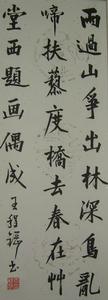 雨過山爭出林深鳥亂
啼扶藜度橋去春在艸
堂西題画偶成王